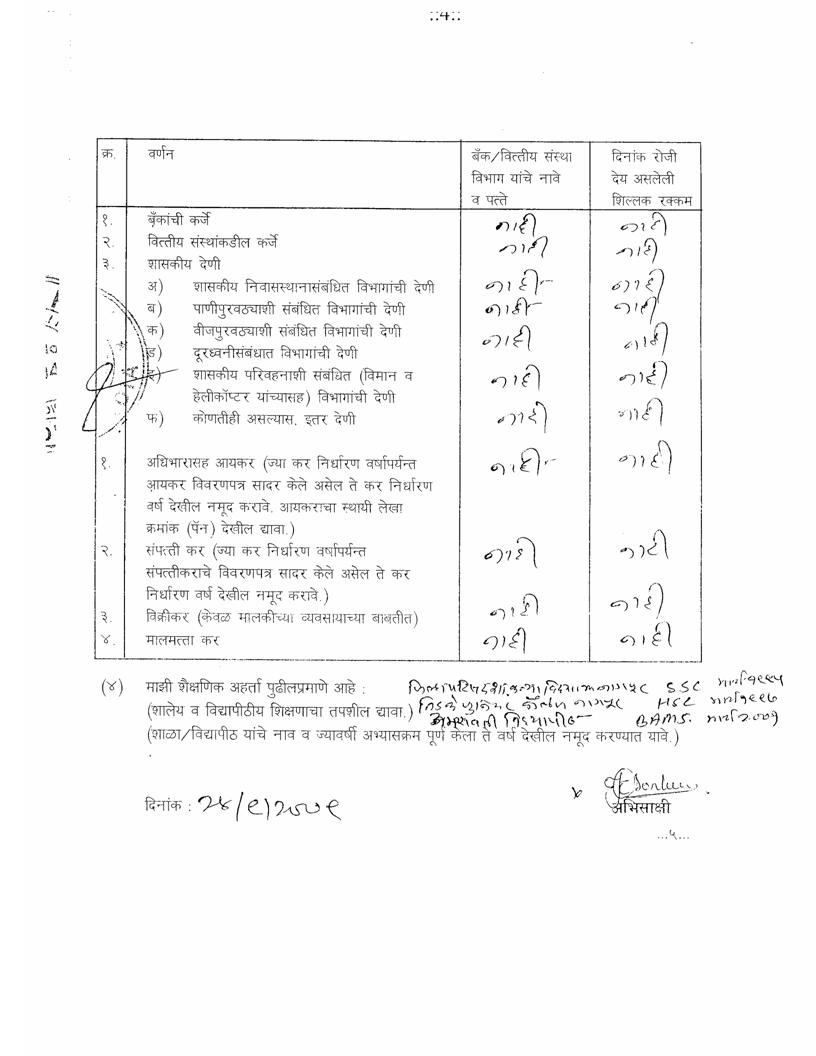 ::4::
क्र. वर्णन बँक/वित्तीय संस्था दिनांक रोजी
विभाग यांचे नावे देय असलेली
व पत्ते शिल्लक रक्कम
१. बँकांची कर्जे नाही नाही
२. वित्तीय संस्थांकडील कर्जे नाही नाही
३. शासकीय देणी
अ) शासकीय निवासस्थानासंबंधित विभागांची देणी नाही नाही
ब) पाणीपुरवठ्याशी संबंधित विभागांची देणी नाही नाही
क) वीजपुरवठ्याशी संबंधित विभागांची देणी नाही नाही
ड) दूरध्वनीसंबंधात विभागांची देणी
शासकीय परिवहनाशी संबंधित (विमान व नाही नाही
हेलीकॉप्टर यांच्यासह) विभागांची देणी
फ) कोणतीही असल्यास, इतर देणी नाही नाही
१. अधिभारासह आयकर (ज्या कर निर्धारण वर्षापर्यन्त नाही नाही
आयकर विवरणपत्र सादर केले असेल ते कर निर्धारण
वर्ष देखील नमूद करावे. आयकराचा स्थायी लेखा
क्रमांक (पॅन) देखील द्यावा.)
२. संपत्ती कर (ज्या कर निर्धारण वर्षापर्यन्त नाही नाही
संपत्तीकराचे विवरणपत्र सादर केले असेल ते कर
निर्धारण वर्ष देखील नमूद करावे.)
३. विक्रीकर (केवळ मालकीच्या व्यवसायाच्या बाबतीत) नाही नाही
४. मालमत्ता कर नाही नाही
(४) माझी शैक्षणिक अहर्ता पुढीलप्रमाणे आहे : SSC मार्च १९९५
(शालेय व विद्यापीठीय शिक्षणाचा तपशील द्यावा.) ज्युनियर कॉलेज नागपूर HSC मार्च १९९७
अमरावती विद्यापीठ BAMS. मार्च २००१
(शाळा/विद्यापीठ यांचे नाव व ज्यावर्षी अभ्यासक्रम पूर्ण केला ते वर्ष देखील नमूद करण्यात यावे.)
दिनांक : २४/९/२००९
अभिसाक्षी
...५...